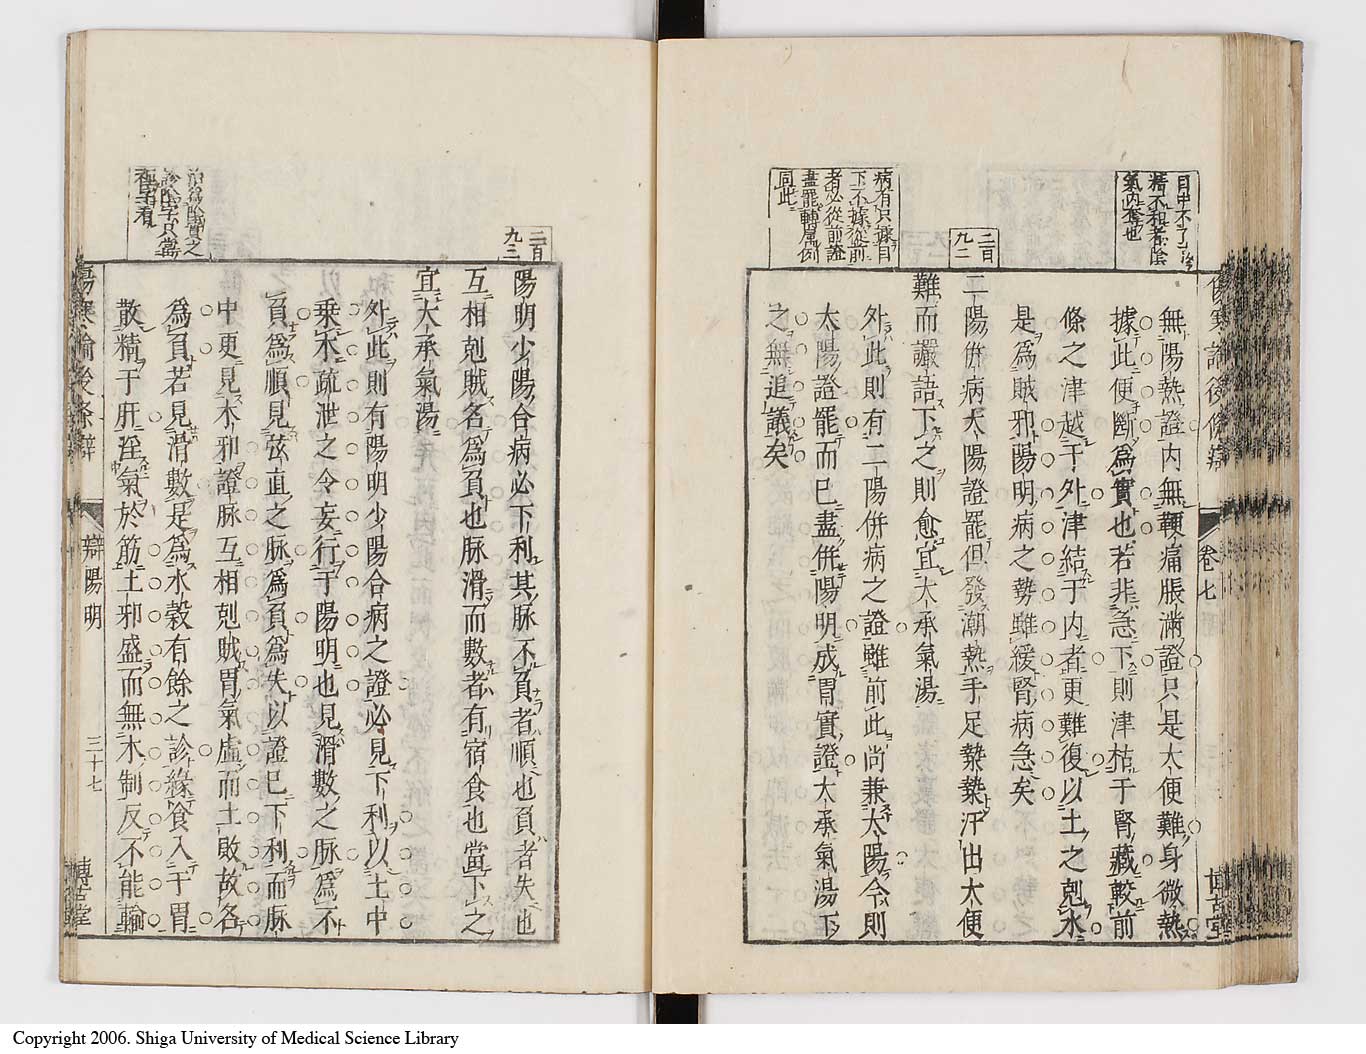 目中不了了
精不和者陰
氣內奪也
無陽熱證内無鞕痛脹滿證只是大便難身微熱
據此便斷爲實也若非急下則津枯于腎藏較前
條之津越于外津結于内者更難復以土之剋水
是爲賊邪陽明病之勢雖緩腎病急矣
二百
九二
二陽併病太陽證罷但發潮熱手足漐漐汗出大便
難而讝語下之則愈宜大承氣湯
病有只據目
下不據從前
者必從前證
盡罷轉屬例
同此
外此則有二陽併病之證雖前此尚兼太陽今則
太陽證罷而已盡併陽明成胃實證大承氣湯下
之無追議矣
傷寒論後條辯
卷七
博古堂
二百
九三
陽明少陽合病必下利其脉不負者順也負者失也
互相剋賊名爲負也脉滑而數者有宿食也當下之
宜大承氣湯
外此則有陽明少陽合病之證必見下利以土中
乗木疏泄之令妄行于陽明也見滑數之脉爲不
負爲順見弦直之脉爲負爲失以證已下利而脉
中更見木邪證脉互相剋賊胃氣虛而土敗故名
爲負若見滑數是爲水糓有餘之診緣食入于胃
散精于肝淫氣於筋土邪盛而無木制反不能輸
傷寒論後條辯
辯陽明
三十七
博古堂
Copyright 2006. Shiga University of Medical Science Library